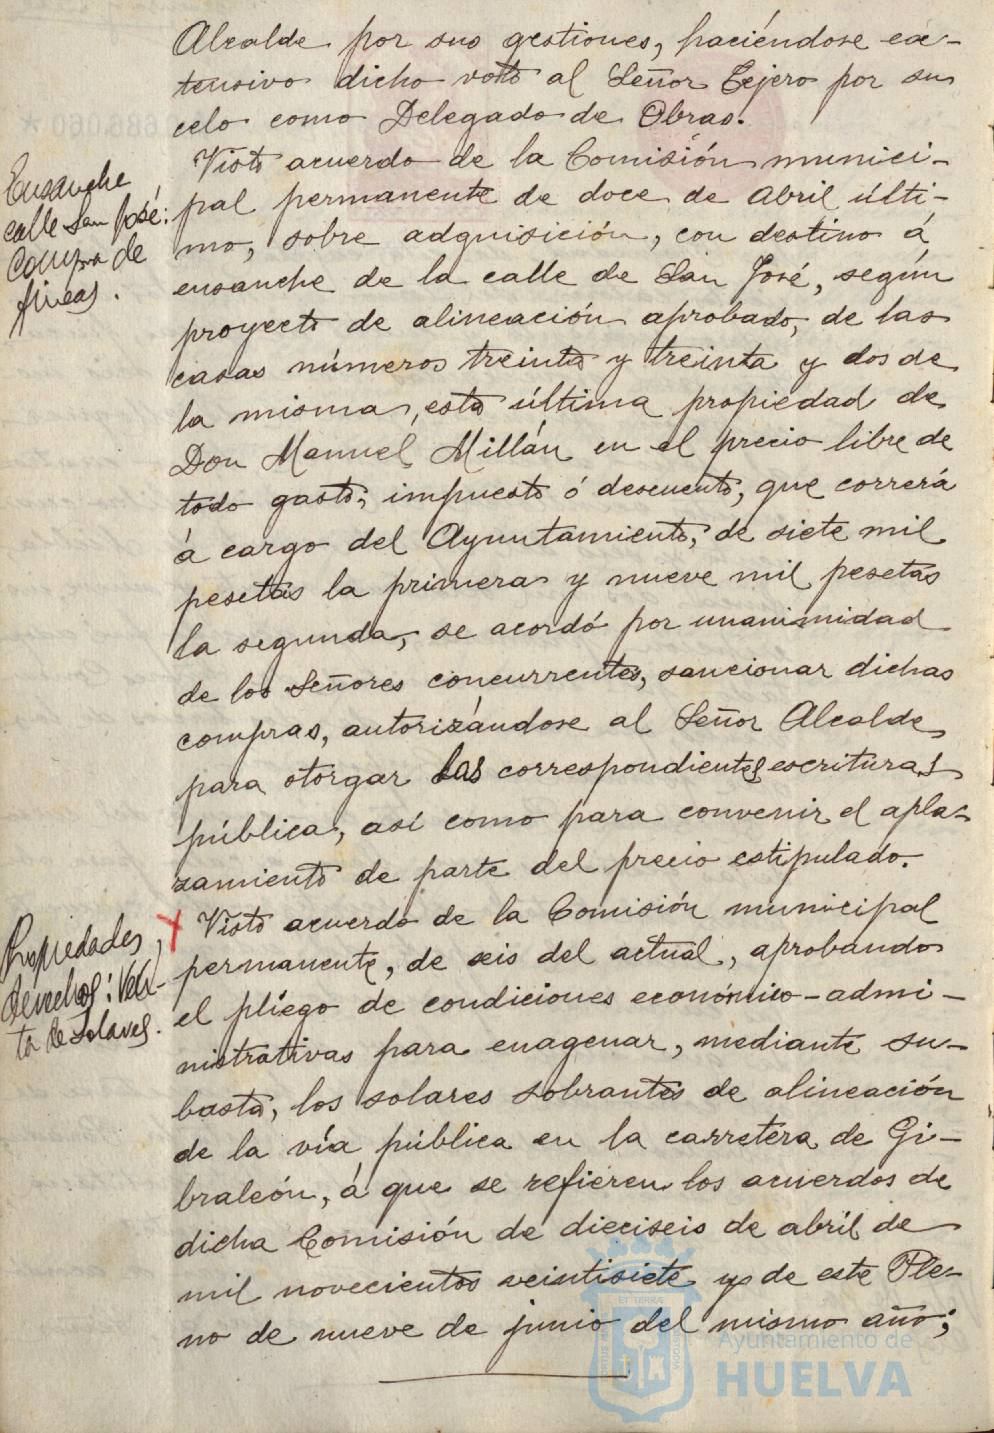 Alcalde por sus gestiones, haciéndose ex-
tensivo dicho voto al Señor Tejero por su
celo como Delegado de Obras.
Visto acuerdo de la Comisión munici-
pal permanente de doce de Abril últi-
mo, sobre adquisición, con destino á
ensanche de la calle de San José, según
proyecto de alineación aprobado, de las
casas números treinta y treinta y dos de
la misma, esta última propiedad de
Don Manuel Millán en el precio libre de
todo gasto, impuesto ó descuento, que correrá
á cargo del Ayuntamiento, de siete mil
pesetas la primera y nueve mil pesetas
la segunda, se acordó por unanimidad
de los Señores concurrentes, sancionar dichas
compras, autorizándose al Señor Alcalde
para otorgar las correspondientes escrituras
pública, así como para convenir el apla-
zamiento de parte del precio estipulado.
Visto acuerdo de la Comisión municipal
permanente, de seis del actual, aprobando
el pliego de condiciones económico-admi-
nistrativas para enagenar, mediante su-
basta, los solares sobrantes de alineación
de la vía pública en la carretera de Gi-
braleón, á que se refieren los acuerdos de
dicha Comisión de dieciseis de abril de
mil novecientos veintisiete y de este Ple-
no de nueve de junio del mismo año;
Ensanche
calle San José:
Compra de
fincas.
Propiedades,
derechos: Ven-
ta de Solares.
Ayuntamiento de
HUELVA